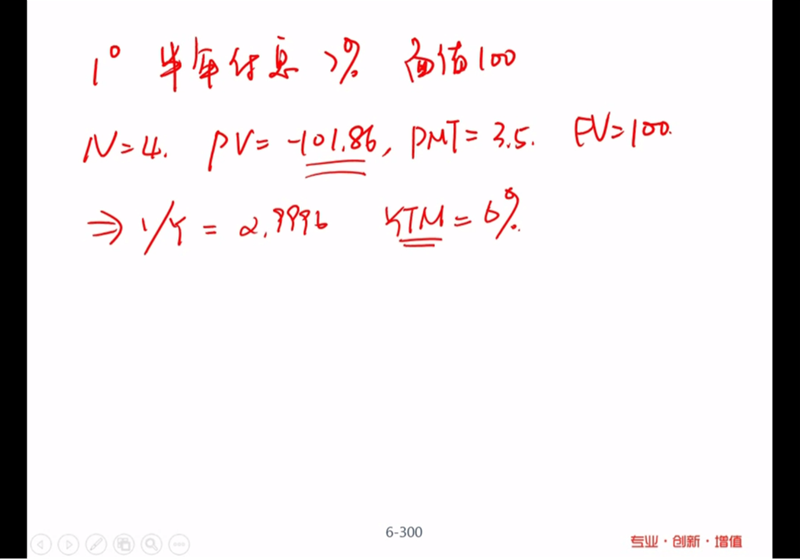 1° 半年付息 7% 面值100
N=4. PV= -101.86, PMT=3.5. FV=100.
⇒ I/Y = 2.9996 YTM = 6%
6-300
专业·创新·增值